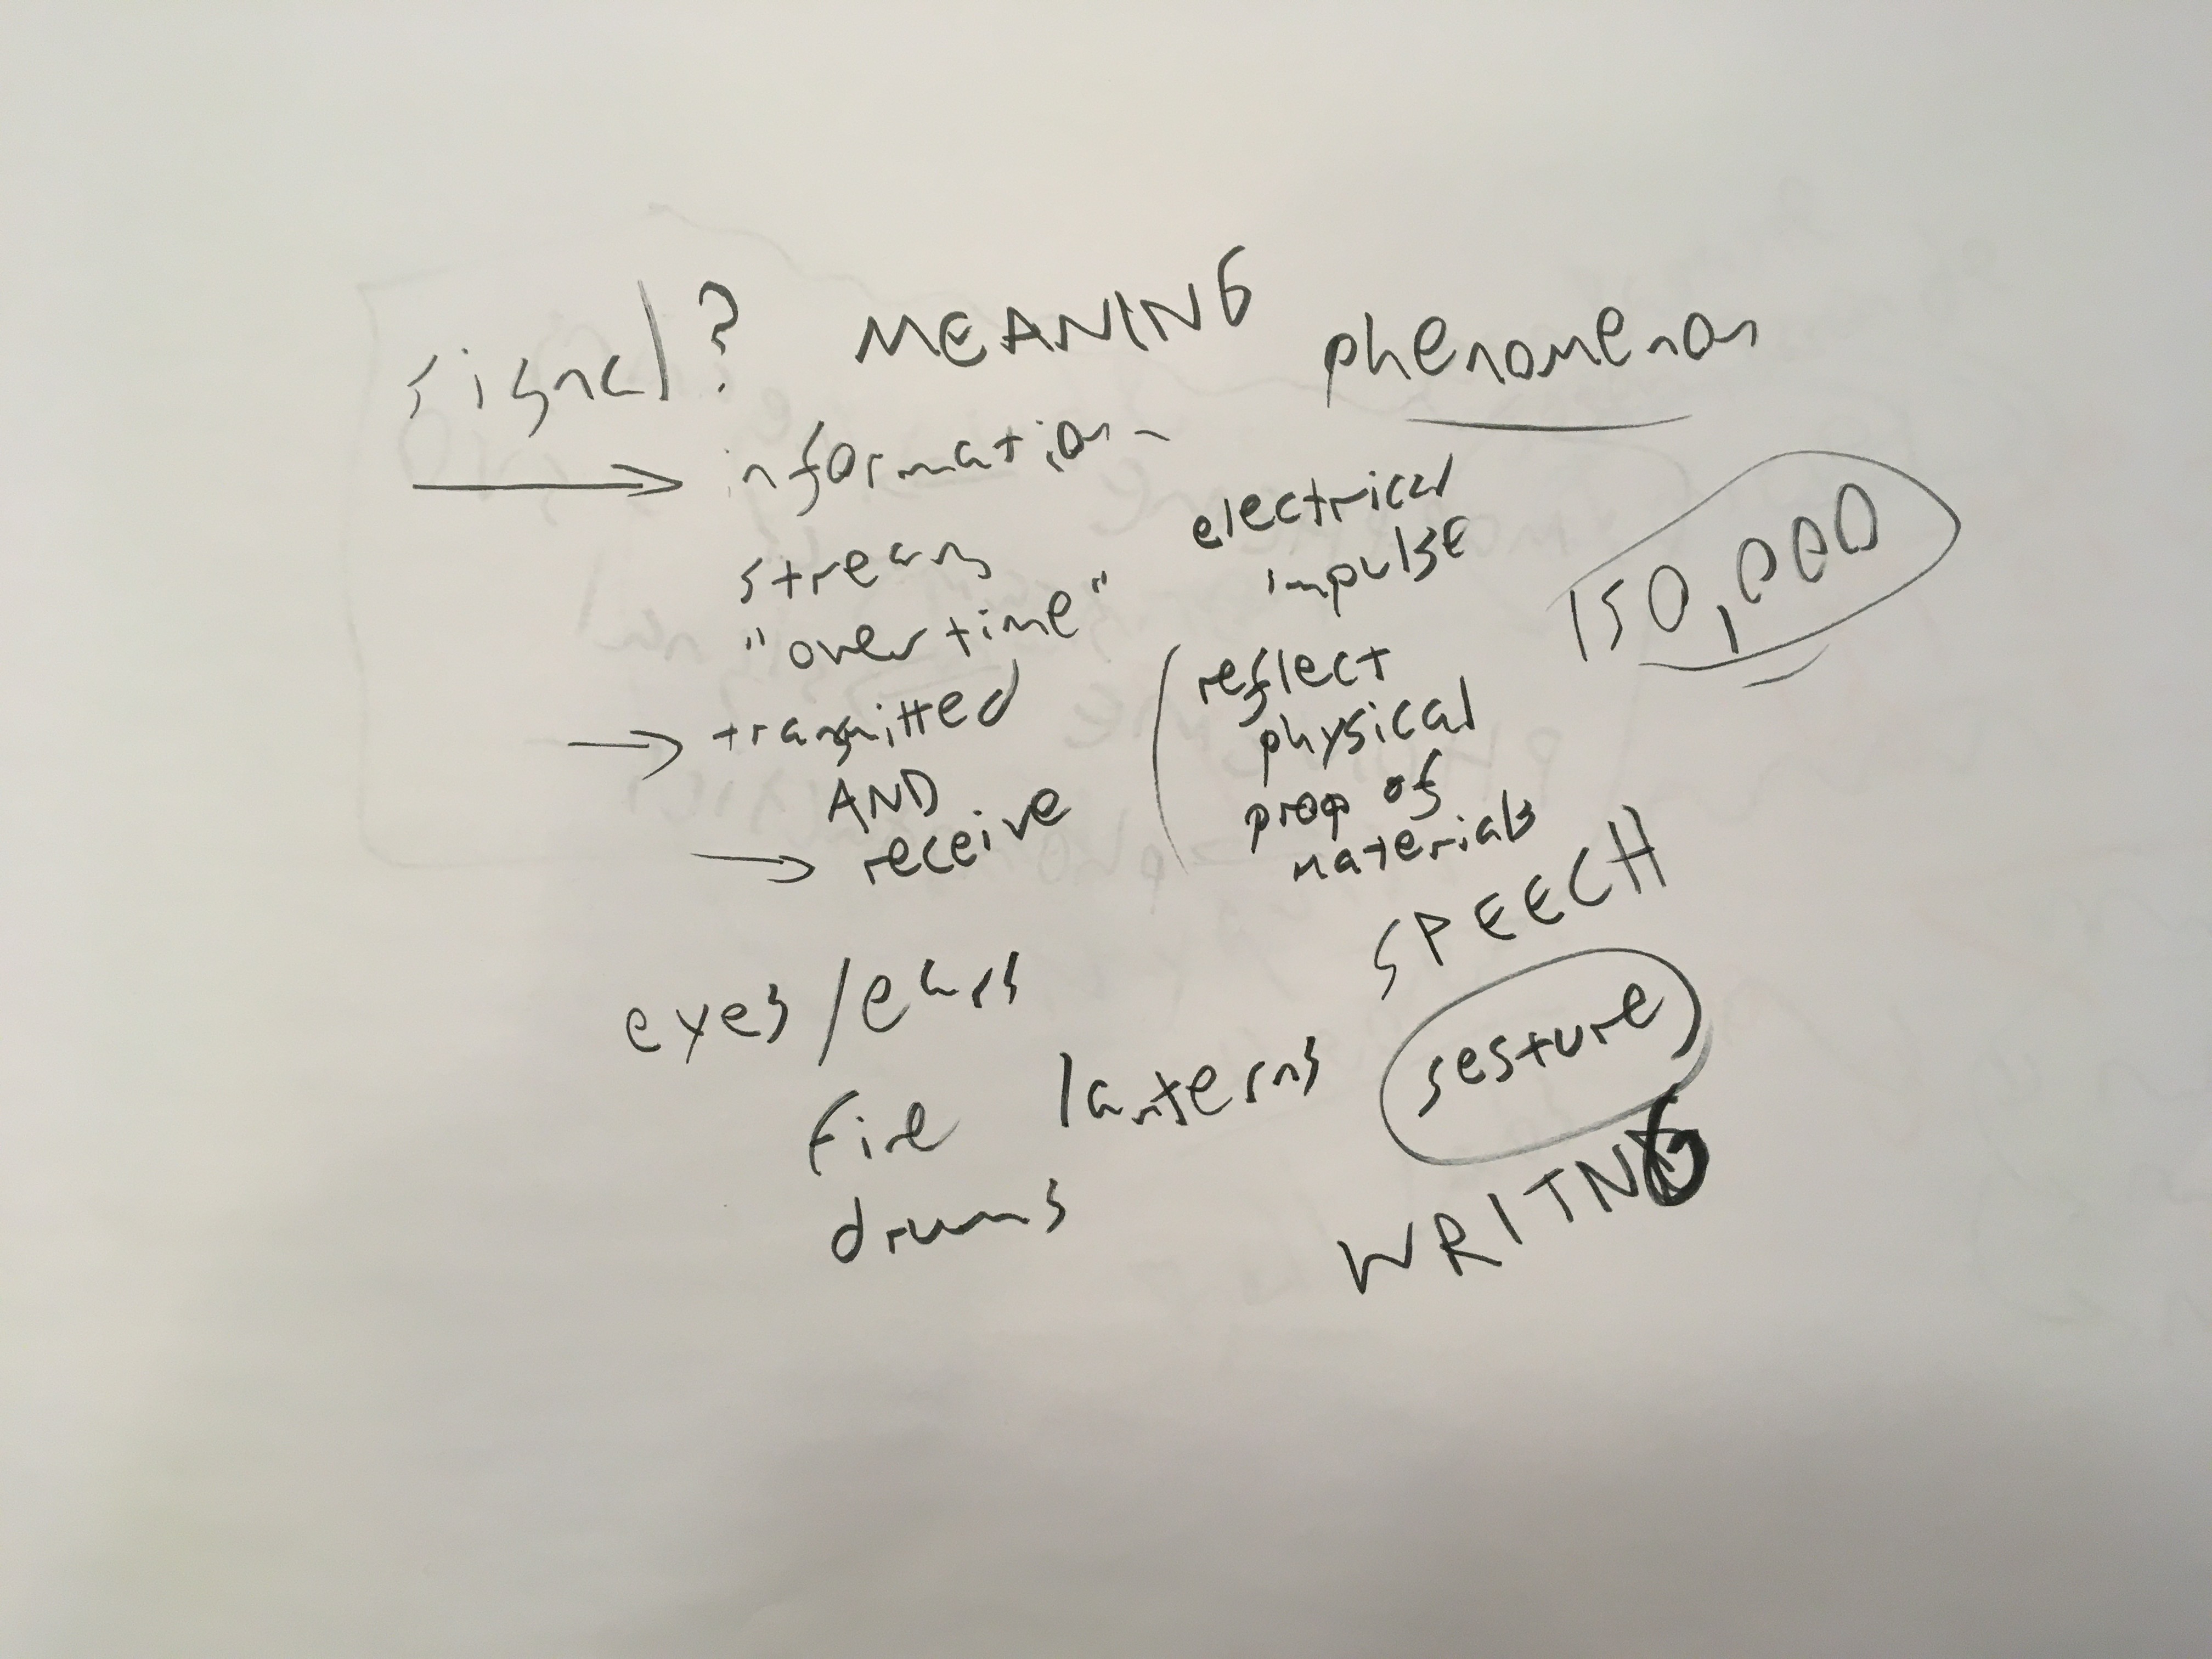 signal? MEANING phenomenon
→ information -
stream
"over time"
→ transmitted
AND
→ receive
electrical
impulse
150,000
reflect
physical
prop of
materials
eyes/ears
fire lanterns
drums
SPEECH
gesture
WRITNG